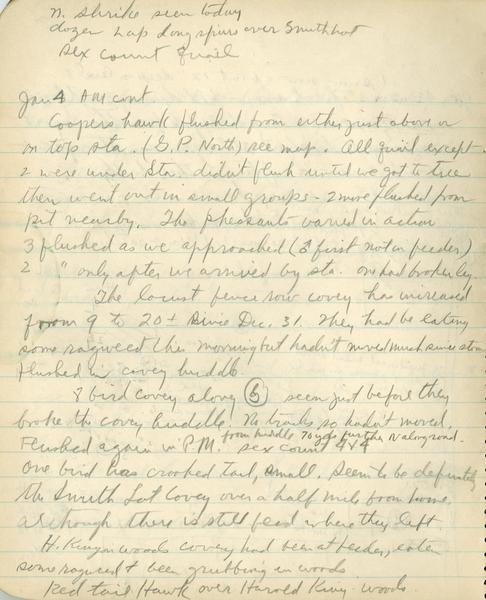 N. Shrike seen today
dozen Lap Longspurs over Smith lot
sex count Quail
Jan 4 AM cont
Coopers hawk flushed from either just above or
on top sta. (G.P. North) see map. All quail except
2 were under Sta. didn't flush until we got to tree
then went out in small groups - 2 more flushed from
pit nearby. The pheasants varied in action
3 flushed as we approached (♂ first not on feeder)
2 " only after we arrived by sta. one had broken leg.
The locust fence row covey has increased
from 9 to 20± since Dec. 31. They had be eating
some ragweed this morning but hadn't moved much since storm
flushed in covey huddle.
8 bird covey along 5 seen just before they
broke the covey huddle. No tracks so hadn't moved.
from huddle 70 yds further N along road.
Flushed again in P.M. sex count 4♂4
One bird has crooked tail, small. Seem to be definitely
the Smith Lot Covey over a half mile from home,
although there is still feed where they left
H. King woods covey had been at feeder, eaten
some ragweed & been grubbing in woods
Red tail Hawk over Harold King woods.